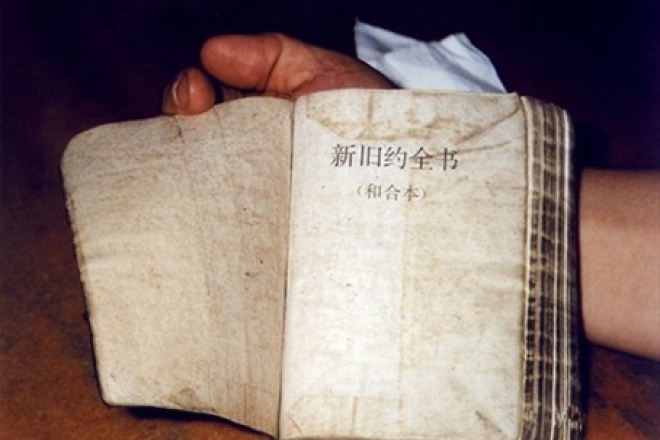 新旧约全书
（和合本）